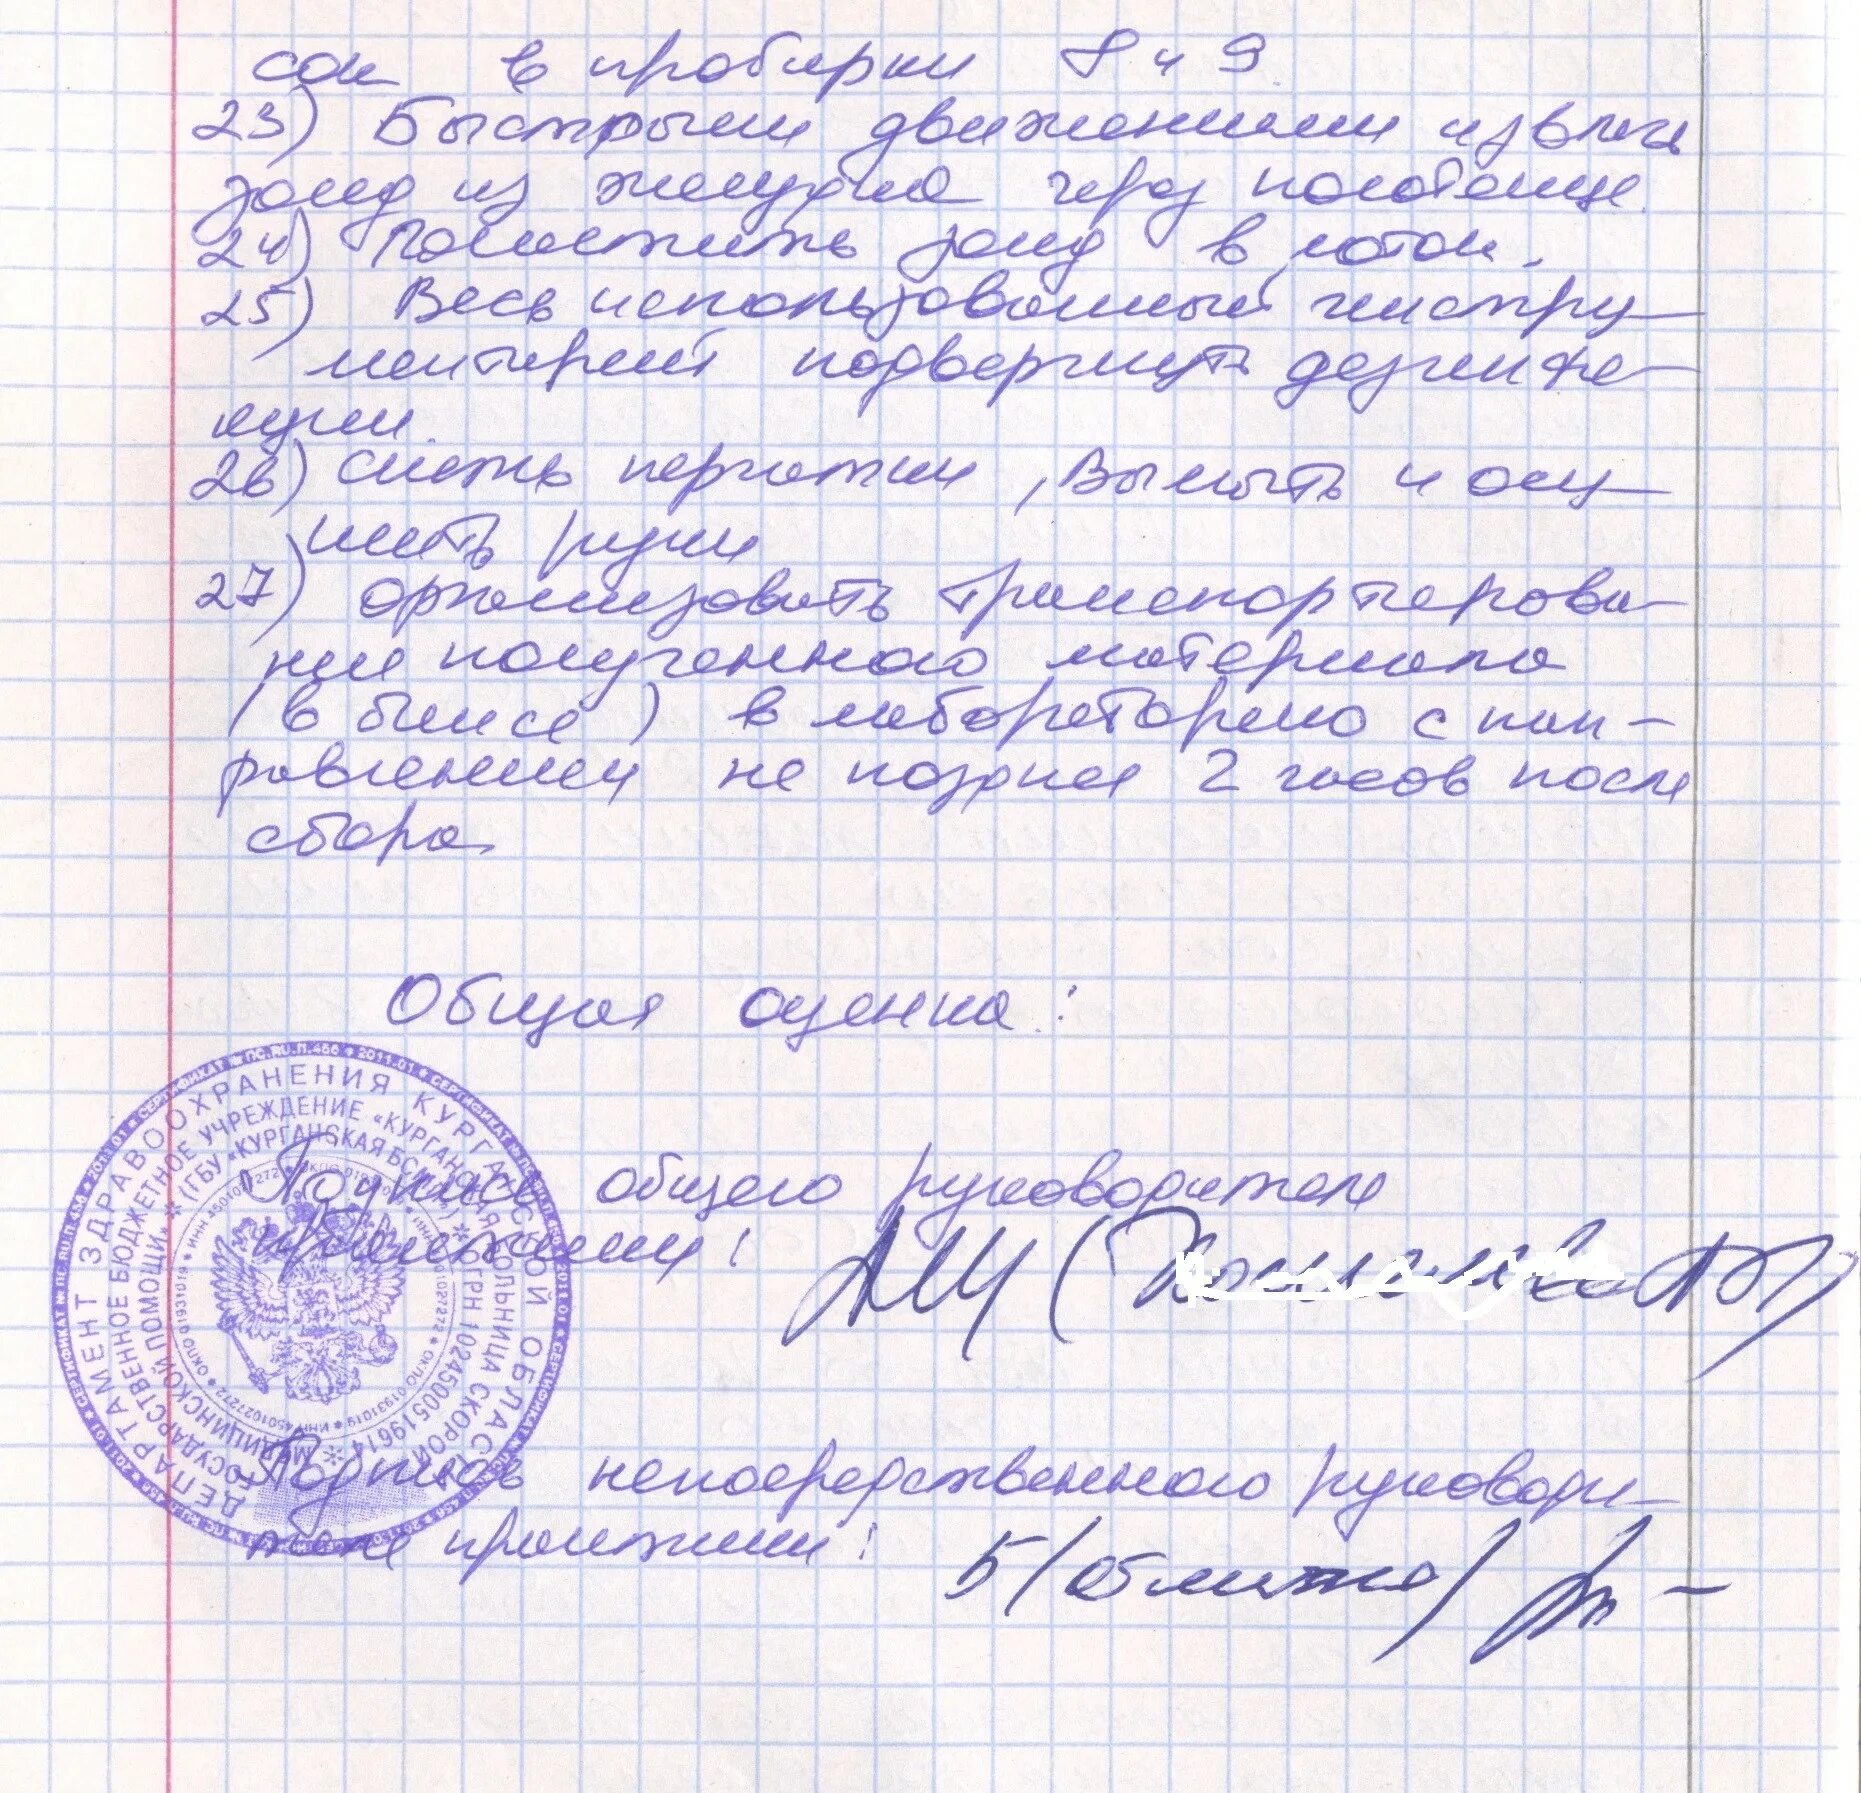 сок в пробирки 8 и 9.
23) Быстрыми движениями извлечь
зонд из желудка через полотенце.
24) Положить зонд в лоток.
25) Весь использованный инстру-
ментарий подвергнуть дезинфе-
кции.
26) снять перчатки, вымыть и осу-
шить руки
27) организовать транспортирова-
ние полученного материала
(в биксе) в лабораторию с нап-
равлением не позднее 2 часов после
сбора.
Общая оценка:
Подпись общего руководителя
практики:
Подпись непосредственного руководи-
теля практики:
5/
ДЕПАРТАМЕНТ ЗДРАВООХРАНЕНИЯ КУРГАНСКОЙ ОБЛАСТИ
ГОСУДАРСТВЕННОЕ БЮДЖЕТНОЕ УЧРЕЖДЕНИЕ «КУРГАНСКАЯ БОЛЬНИЦА СКОРОЙ
МЕДИЦИНСКОЙ ПОМОЩИ» (ГБУ «КУРГАНСКАЯ БСМП») ОГРН 1024500519614
ИНН 4501027272 ОКПО 01931019